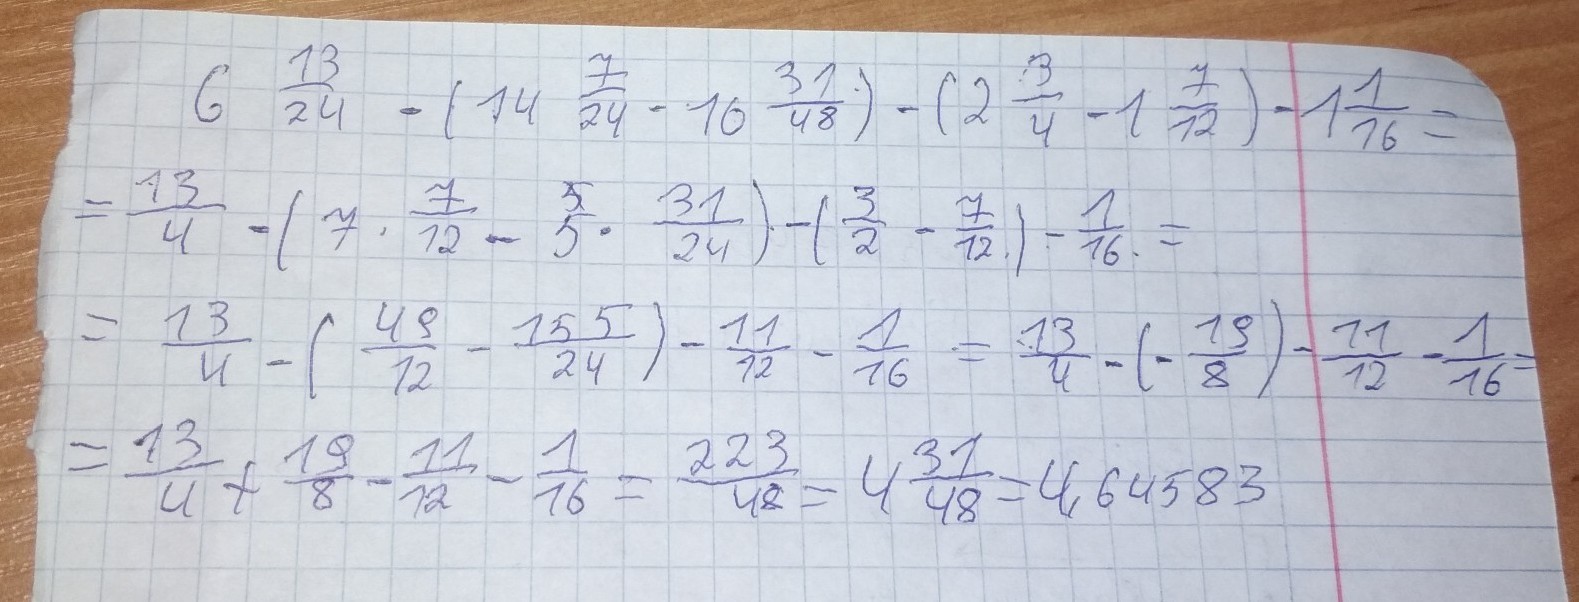 6 13/24 - (14 7/24 - 10 31/48) - (2 3/4 - 1 7/12) - 1 1/16 =
= 13/4 - (7 · 7/12 - 5/5 · 31/24) - (3/2 - 7/12) - 1/16 =
= 13/4 - (49/12 - 155/24) - 11/12 - 1/16 = 13/4 - (- 19/8) - 11/12 - 1/16 =
= 13/4 + 19/8 - 11/12 - 1/16 = 223/48 = 4 31/48 = 4,64583